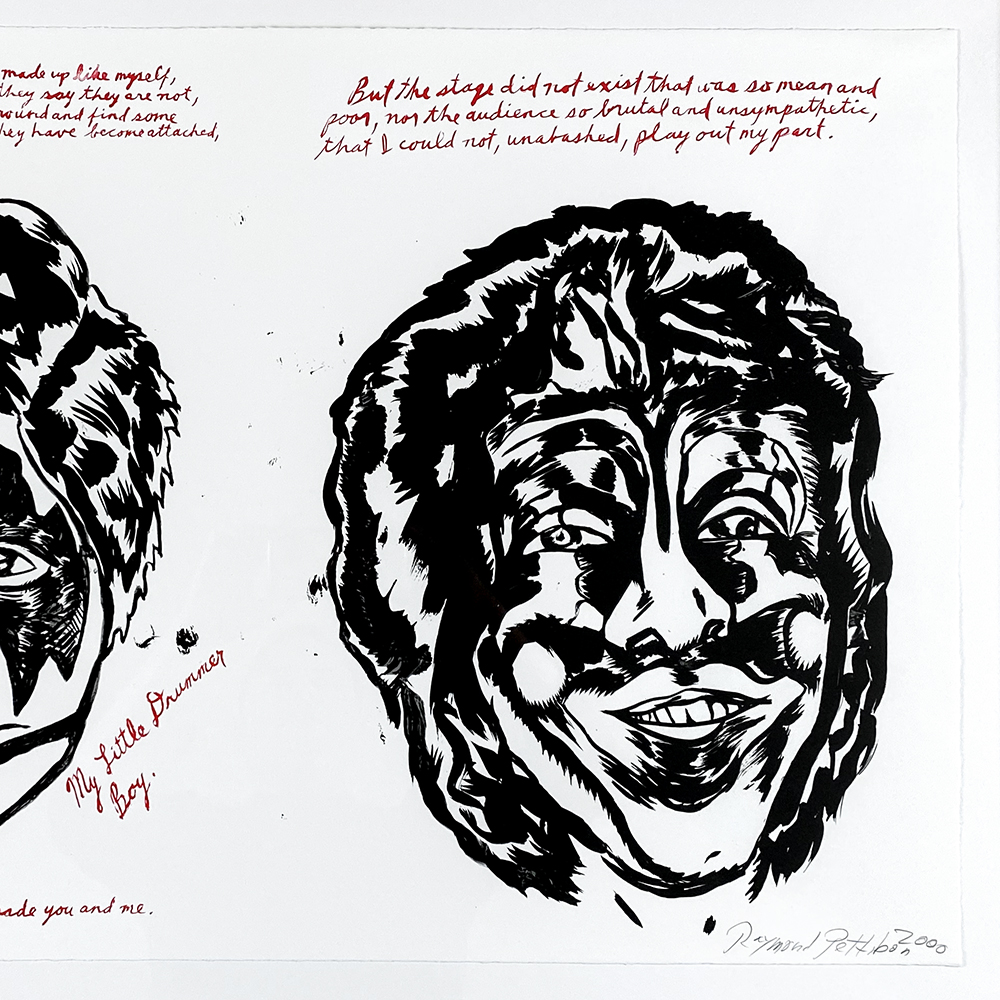 made up like myself,
they say they are not,
wound and find some
hey have become attached,
But the stage did not exist that was so mean and
poor, nor the audience so brutal and unsympathetic,
that I could not, unabashed, play out my part.
My Little Drummer
Boy.
ade you and me.
Raymond Pettibon 2000